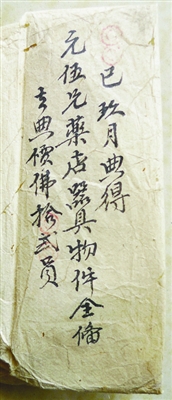 己玖月典得
元伍兄藥店器具物件全備
去典價佛拾弍員